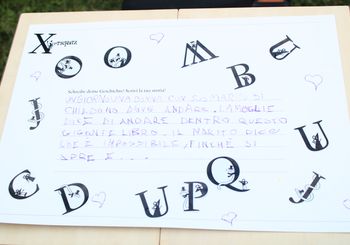 X
O O M
B U
Schreibt deine Geschichte! Scrivi la tua storia!
UN GIORNO UNA DONNA CON SUO MARITO SI
CHIEDONO DOVE ANDARE. LA MOGLIE
DICE DI ANDARE DENTRO QUESTO
GIGANTE LIBRO. IL MARITO DICE
CHE È IMPOSSIBILE, FINCHÉ SI
APRE E . . .
J
C D U P Q U J